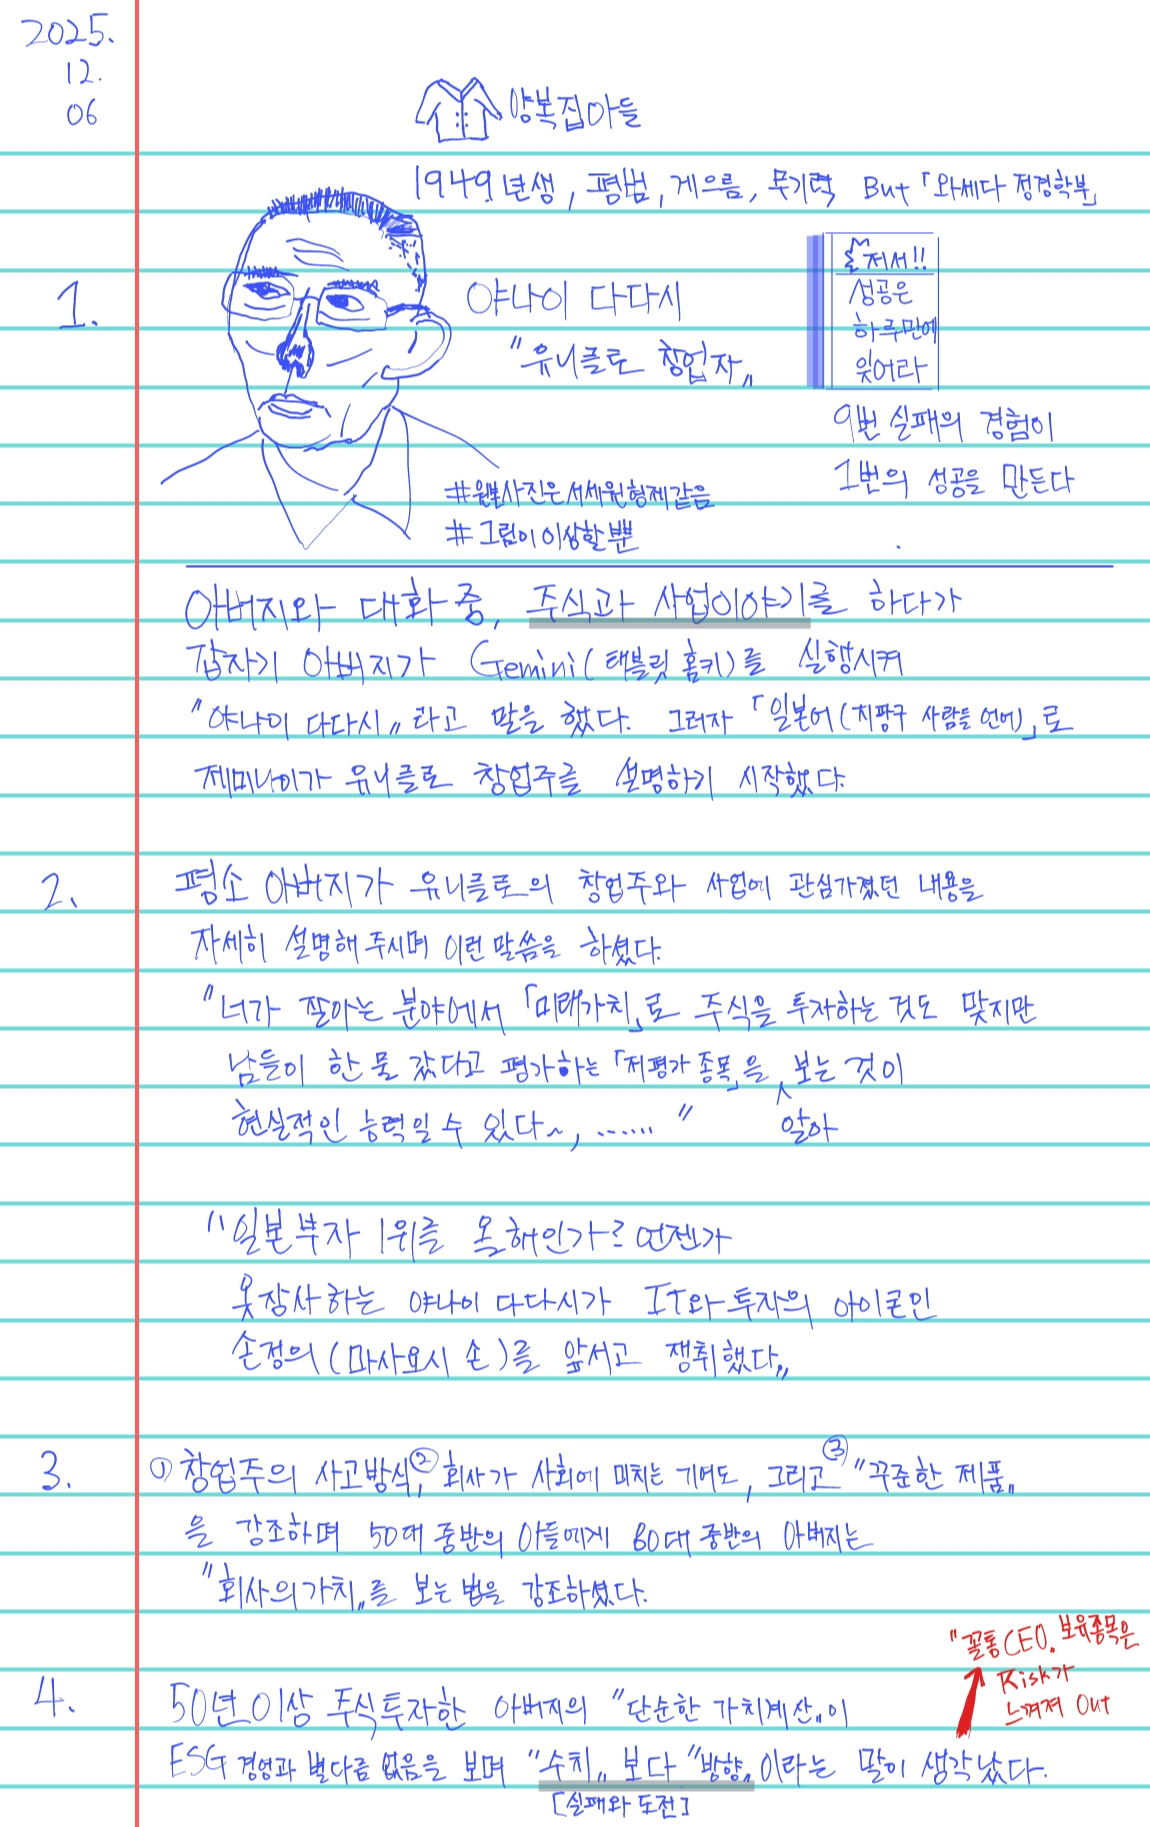 2025.
12.
06
양복집아들
1949년생, 평범, 게으름, 무기력 But 「와세다 정경학부」
저서!!
성공은
하루만에
잊어라
1.
야나이 다다시
"유니클로 창업자"
9번 실패의 경험이
1번의 성공을 만든다
#원본사진은서세원형제같음
#그림이이상할뿐
아버지와 대화 중, 주식과 사업이야기를 하다가
갑자기 아버지가 Gemini(태블릿 홈키)를 실행시켜
"야나이 다다시"라고 말을 했다. 그러자 「일본어(지팡구 사람들 언어)」로
제미나이가 유니클로 창업주를 설명하기 시작했다.
2.
평소 아버지가 유니클로의 창업주와 사업에 관심가졌던 내용을
자세히 설명해 주시며 이런 말씀을 하셨다.
"너가 잘아는 분야에서 「미래가치」로 주식을 투자하는 것도 맞지만
남들이 한 물 갔다고 평가하는 「저평가 종목」을 보는 것이
알아
현실적인 능력일 수 있다~, ......"
"일본부자 1위를 올해인가? 언젠가
옷장사하는 야나이 다다시가 IT와 투자의 아이콘인
손정의(마사요시 손)를 앞서고 쟁취했다"
3.
① 창업주의 사고방식, ② 회사가 사회에 미치는 기여도, 그리고 ③ "꾸준한 제품"
을 강조하며 50대 중반의 아들에게 80대 중반의 아버지는
"회사의가치"를 보는 법을 강조하셨다.
"꼴통CEO. 보유종목은
Risk가
느껴져 Out
4.
50년이상 주식투자한 아버지의 "단순한 가치계산"이
ESG 경영과 별다름 없음을 보며 "수치" 보다 "방향"이라는 말이 생각났다.
[실패와 도전]